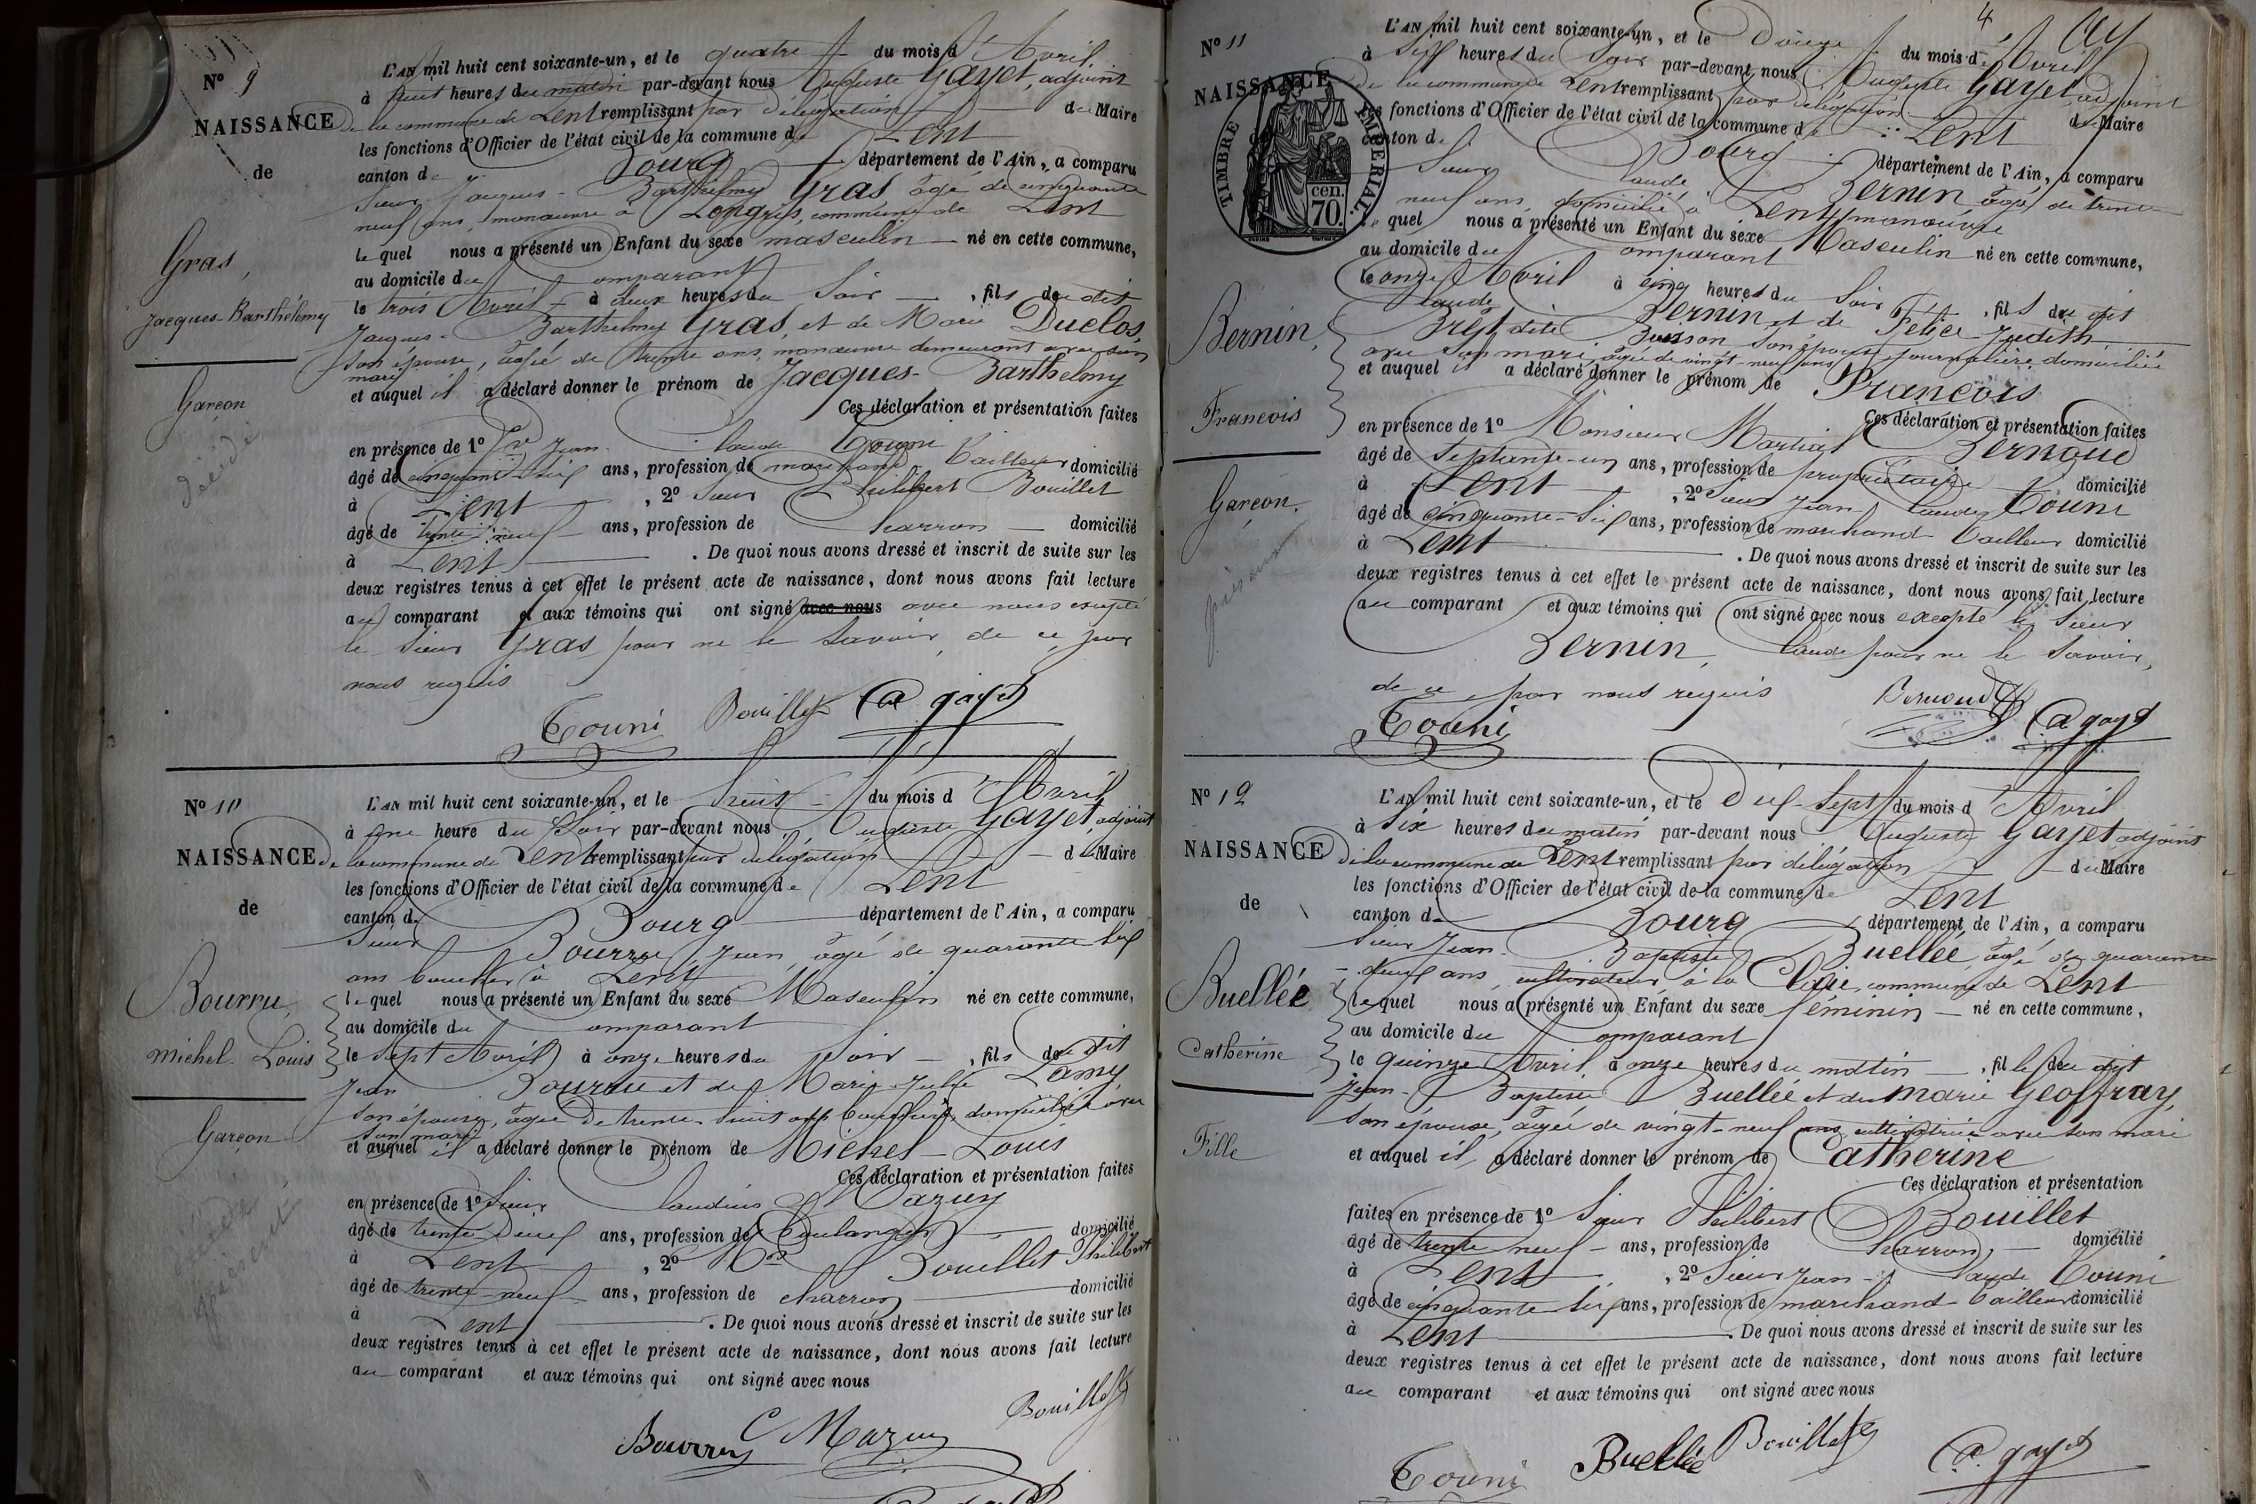 N° 9
NAISSANCE
de
Gras,
Jacques-Barthélemy
Garçon
L'AN mil huit cent soixante-un, et le quatre du mois d'Avril
à huit heures du matin par-devant nous Auguste Gayet, adjoint
de la commune de Lent remplissant par délégation du Maire
les fonctions d'Officier de l'état civil de la commune de Lent
canton de Bourg département de l'Ain, a comparu
Sieur Jacques-Barthelmy Gras âgé de cinquante
neuf ans, manœuvre à Longris, commune de Lent
lequel nous a présenté un Enfant du sexe masculin né en cette commune,
au domicile du Comparant
le trois Avril à deux heures du Soir, fils du dit
Jacques-Barthelmy Gras, et de Marie Duclos,
son épouse, âgée de trente ans, manœuvre demeurant avec son
mari
et auquel il a déclaré donner le prénom de Jacques-Barthelmy
Ces déclaration et présentation faites
en présence de 1° Sr Jean-Claude Couni
âgé de cinquante six ans, profession de marchand Tailleur domicilié
à Lent, 2° Sieur Philibert Bouillet
âgé de trente neuf ans, profession de Charron domicilié
à Lent. De quoi nous avons dressé et inscrit de suite sur les
deux registres tenus à cet effet le présent acte de naissance, dont nous avons fait lecture
au comparant et aux témoins qui ont signé avec nous avec nous excepté
le Sieur Gras pour ne le Savoir, de ce, par
nous requis
Couni Bouillet A gayet
N° 10
NAISSANCE
de
Bourru,
Michel-Louis
Garçon
L'AN mil huit cent soixante-un, et le huit du mois d'Avril
à une heure du Soir par-devant nous Auguste Gayet, adjoint
de la commune de Lent remplissant par délégation du Maire
les fonctions d'Officier de l'état civil de la commune de Lent
canton de Bourg département de l'Ain, a comparu
Sieur Bourru, Jean, âgé de quarante six
ans boucher à Lent
lequel nous a présenté un Enfant du sexe Masculin né en cette commune,
au domicile du Comparant
le Sept Avril à onze heures du Soir, fils du dit
Jean Bourru et de Marie-Julie Lamy
son épouse, âgée de trente-huit ans bouchère, domiciliée avec
son mari
et auquel il a déclaré donner le prénom de Michel-Louis
Ces déclaration et présentation faites
en présence de 1° Sieur Claudius Mazuy
âgé de trente-deux ans, profession de Boulanger domicilié
à Lent, 2° Bouillet Philibert
âgé de trente-neuf ans, profession de charron domicilié
à Lent. De quoi nous avons dressé et inscrit de suite sur les
deux registres tenus à cet effet le présent acte de naissance, dont nous avons fait lecture
au comparant et aux témoins qui ont signé avec nous
Bouillet
Bourru C Mazuy
4
N° 11
NAISSANCE
TIMBRE IMPERIAL
70 cen.
Bernin,
Francois
Garçon.
L'AN mil huit cent soixante-un, et le Douze du mois d'Avril
à Six heures du Soir par-devant nous Auguste Gayet, adjoint
de la commune de Lent remplissant par délégation du Maire
les fonctions d'Officier de l'état civil de la commune de Lent
canton de Bourg département de l'Ain, a comparu
Sieur Claude Bernin âgé de trente
neuf ans, domicilié à Lent, manœuvre
lequel nous a présenté un Enfant du sexe Masculin né en cette commune,
au domicile du Comparant
le onze Avril à cinq heures du Soir, fils du dit
Claude Bernin et de Felice Judith
Brêt dite Buisson son épouse, journalière, domiciliée
avec son mari, âgée de vingt-neuf ans
et auquel il a déclaré donner le prénom de Francois
Ces déclaration et présentation faites
en présence de 1° Monsieur Martial Bernoud
âgé de Septante-un ans, profession de propriétaire domicilié
à Lent, 2° Sieur Jean Claude Couni
âgé de cinquante-six ans, profession de marchand Tailleur domicilié
à Lent. De quoi nous avons dressé et inscrit de suite sur les
deux registres tenus à cet effet le présent acte de naissance, dont nous avons fait lecture
au comparant et aux témoins qui ont signé avec nous excepté le Sieur
Bernin, Claude pour ne le Savoir,
de ce par nous requis
Couni Bernoud A gayet
N° 12
NAISSANCE
de
Buellée
Catherine
Fille
L'AN mil huit cent soixante-un, et le Dix-Sept du mois d'Avril
à Six heures du matin par-devant nous Auguste Gayet adjoint
de la commune de Lent remplissant par délégation du Maire
les fonctions d'Officier de l'état civil de la commune de Lent
canton de Bourg département de l'Ain, a comparu
Sieur Jean-Baptiste Buellée, âgé de quarante
-deux ans, cultivateur, à la Claie, commune de Lent
lequel nous a présenté un Enfant du sexe féminin né en cette commune,
au domicile du Comparant
le quinze Avril, à onze heures du matin, fille du dit
Jean-Baptiste Buellée et de Marie Geoffray,
son épouse, âgée de vingt-neuf ans, cultivatrice avec son mari
et auquel il a déclaré donner le prénom de Catherine
Ces déclaration et présentation
faites en présence de 1° Sieur Philibert Bouillet
âgé de trente neuf ans, profession de Charron, domicilié
à Lent, 2° Sieur Jean-Claude Couni
âgé de cinquante six ans, profession de marchand-Tailleur domicilié
à Lent. De quoi nous avons dressé et inscrit de suite sur les
deux registres tenus à cet effet le présent acte de naissance, dont nous avons fait lecture
au comparant et aux témoins qui ont signé avec nous
Couni Buellée Bouillet A. gayet